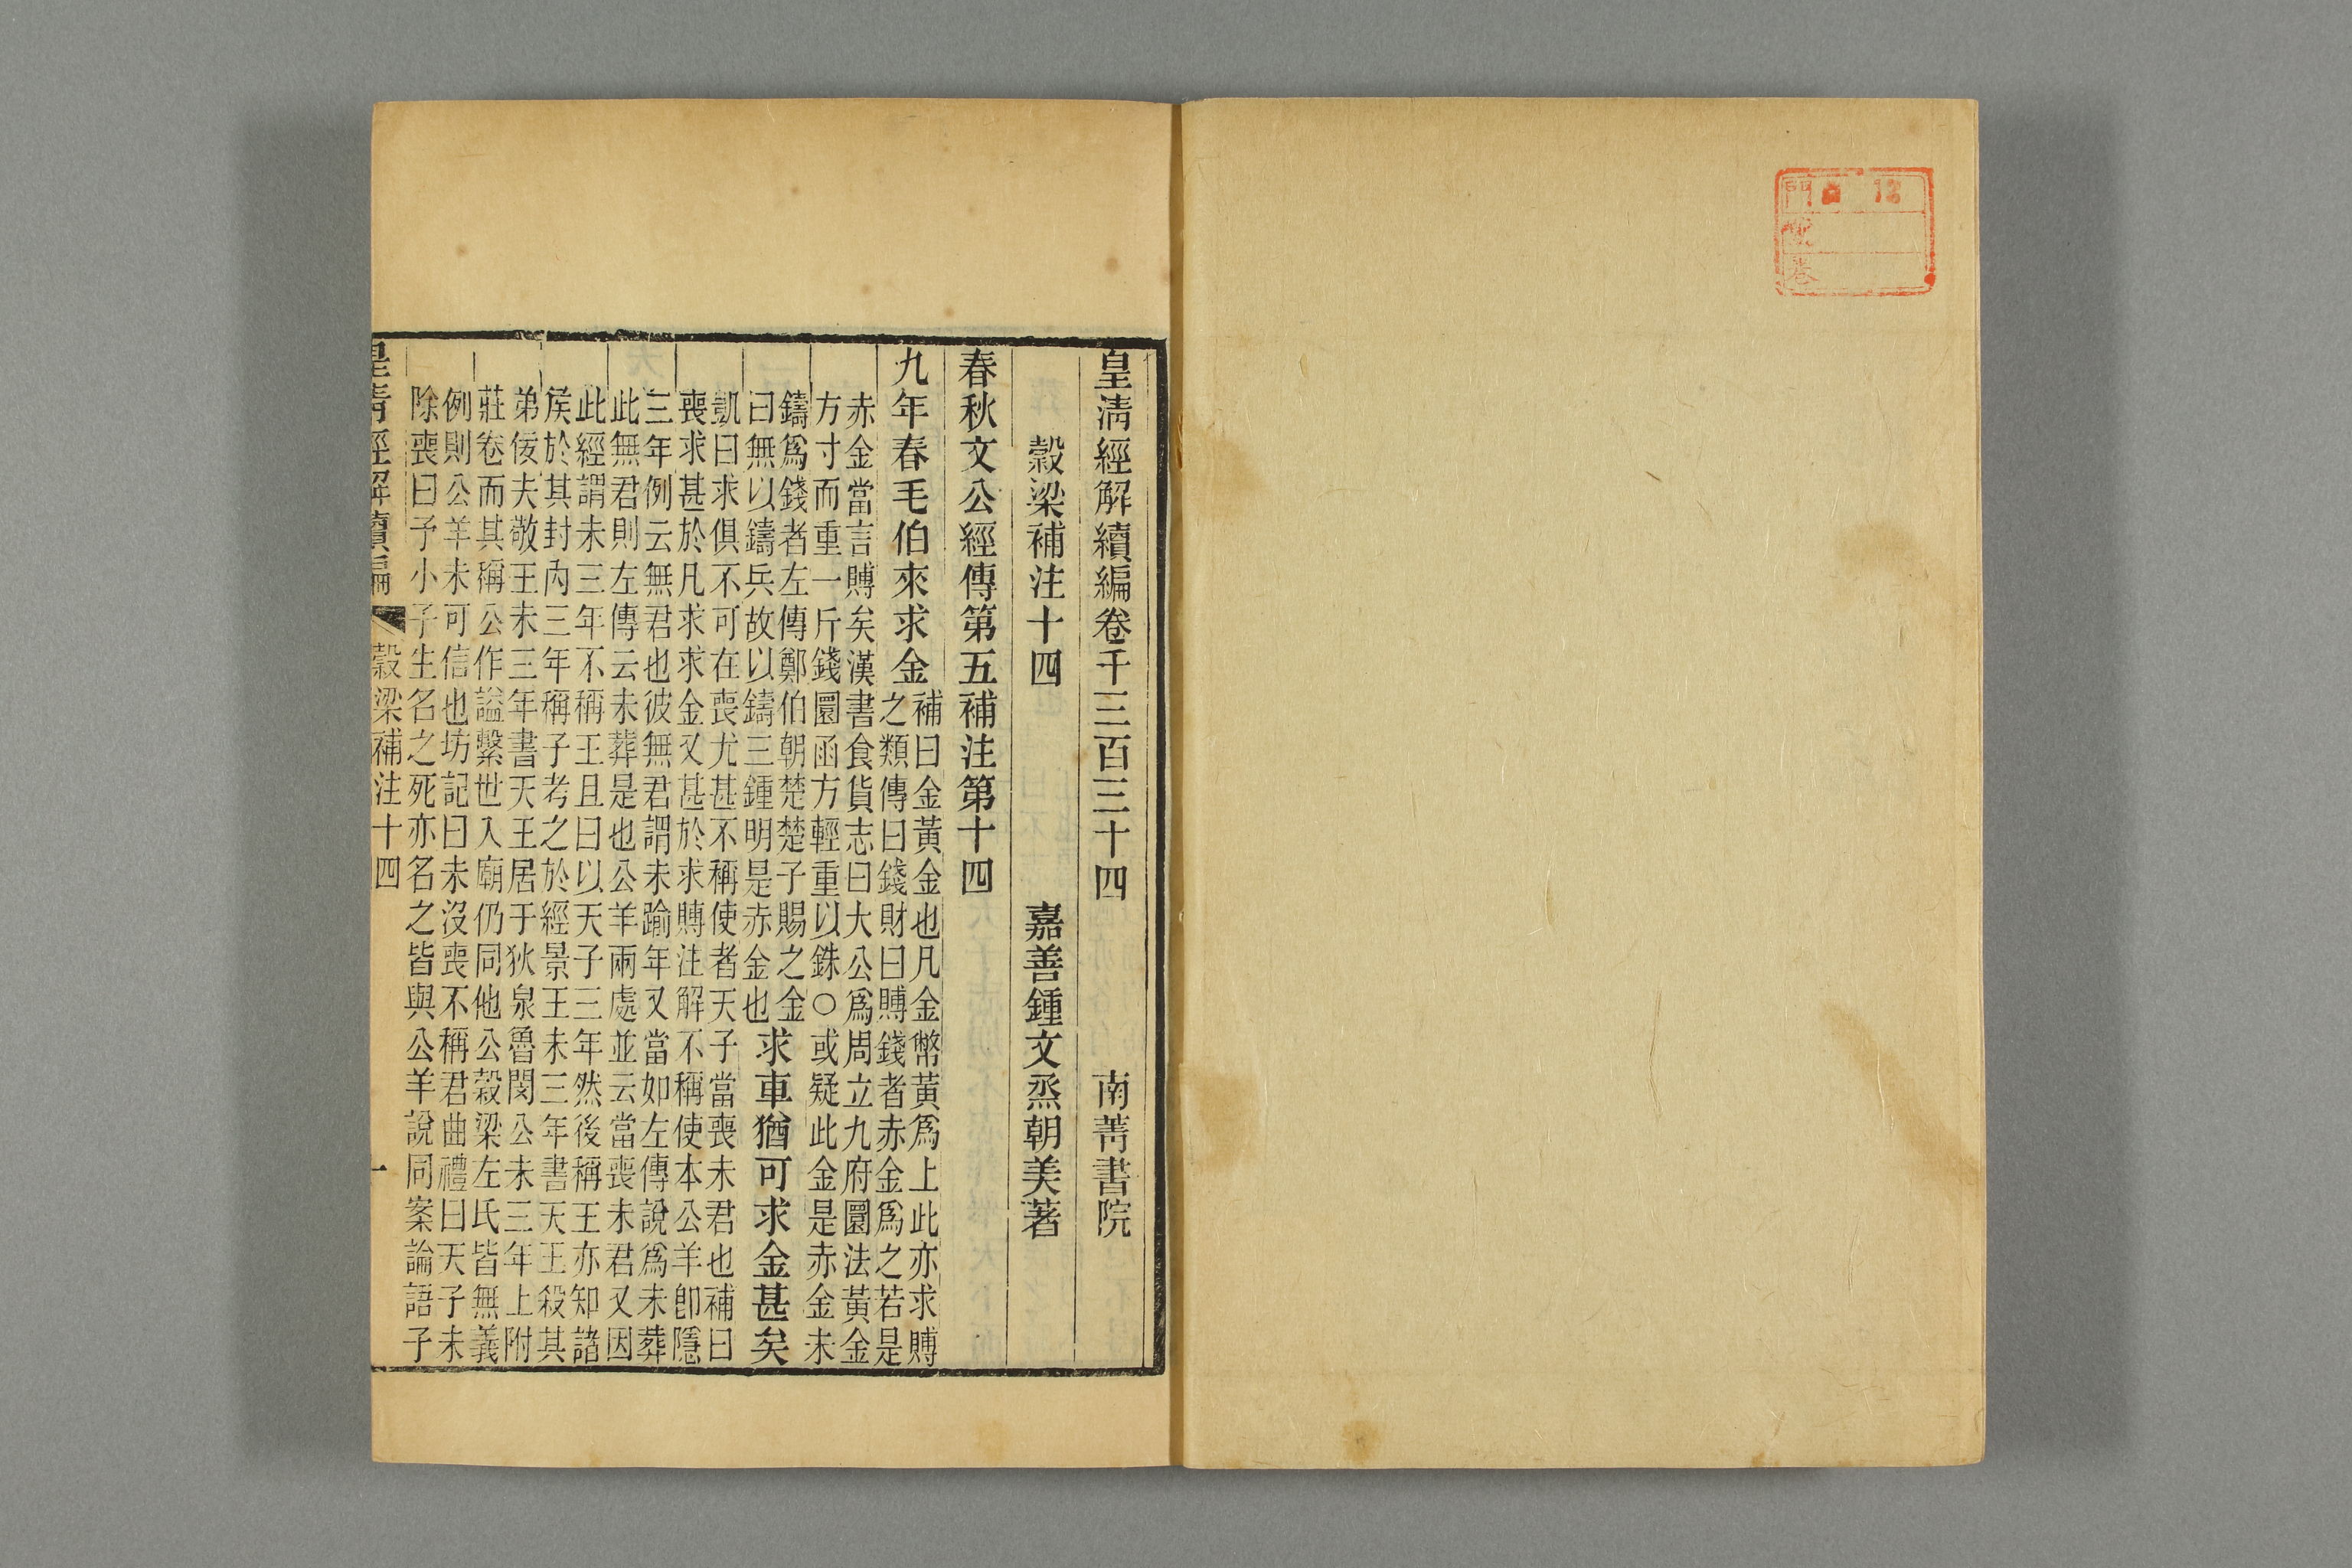 門 12
號
卷
皇清經解續編卷千三百三十四 南菁書院
穀梁補注十四 嘉善鍾文烝朝美著
春秋文公經傳第五補注第十四
九年春毛伯來求金
補曰金黃金也凡金幣黃爲上此亦求賻
之類傳曰錢財曰賻錢者赤金爲之若是
赤金當言賻矣漢書食貨志曰大公爲周立九府圜法黃金
方寸而重一斤錢圜函方輕重以銖○或疑此金是赤金未
鑄爲錢者左傳鄭伯朝楚楚子賜之金
曰無以鑄兵故以鑄三鍾明是赤金也
求車猶可求金甚矣
凱曰求俱不可在喪尤甚不稱使者天子當喪未君也補曰
喪求甚於凡求求金又甚於求賻注解不稱使本公羊卽隱
三年例云無君也彼無君謂未踰年又當如左傳說爲未葬
此無君則左傳云未葬是也公羊兩處並云當喪未君又因
此經謂未三年不稱王且曰以天子三年然後稱王亦知諸
侯於其封內三年稱子考之於經景王未三年書天王殺其
弟佞夫敬王未三年書天王居于狄泉魯閔公未三年上附
莊卷而其稱公作謚繫世入廟仍同他公穀梁左氏皆無義
例則公羊未可信也坊記曰未沒喪不稱君曲禮曰天子未
除喪曰予小子生名之死亦名之皆與公羊說同案論語子
皇清經解續編 穀梁補注十四 一